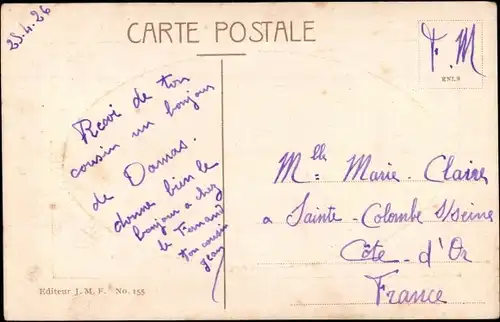 25.4.26
CARTE POSTALE
F. M
Recoi de ton
cousin un bonjour
de Damas.
donne bien le
bonjour a chez
le Fernand
ton cousin
Jean
Mlle Marie-Claire
a Sainte-Colombe s/seine
Côte-d'Or
France
Editeur J. M. F. No. 155